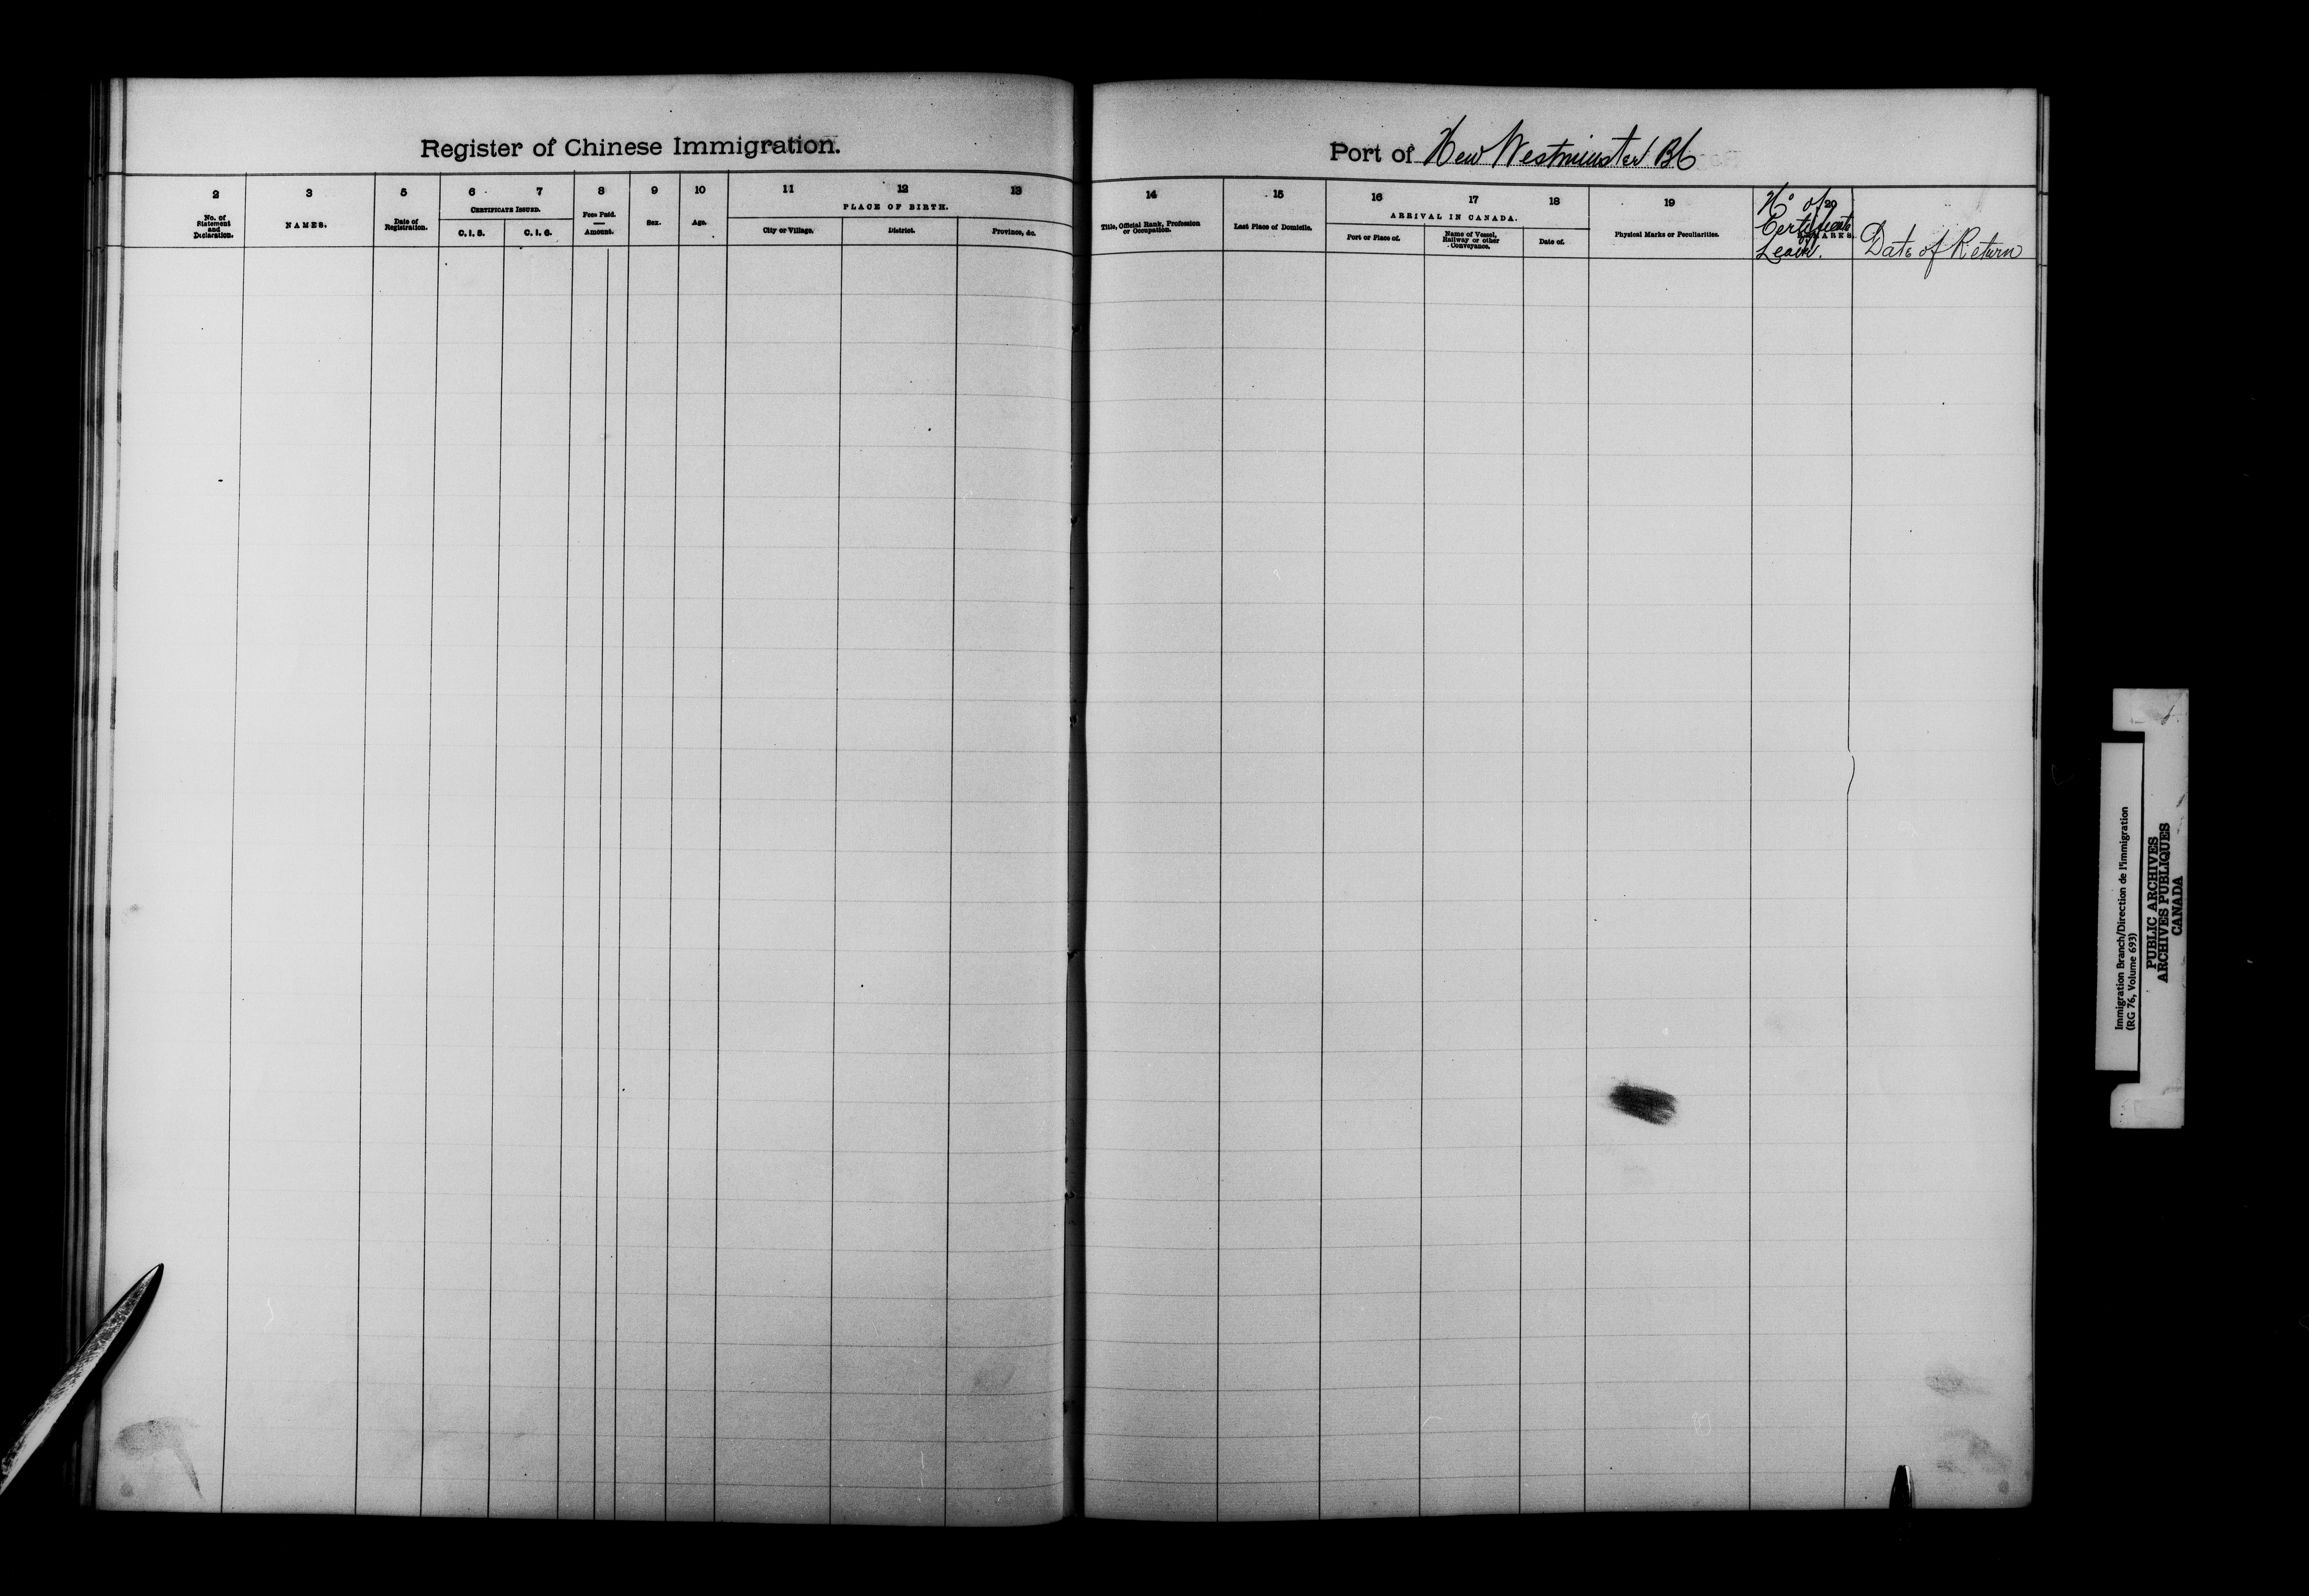 Register of Chinese Immigration.
Port of New Westminster BC
2
3
5
6
7
8
9
10
11
12
13
No. of
Statement
and
Declaration.
NAMES.
Date of
Registration.
CERTIFICATE ISSUED.
C. I. 5.
C. I. 6.
Fees Paid.
Amount.
Sex.
Age.
PLACE OF BIRTH.
City or Village.
District.
Province, &c.
14
15
16
17
18
19
20
Title, Official Rank, Profession
or Occupation.
Last Place of Domicile.
ARRIVAL IN CANADA.
Port or Place of.
Name of Vessel,
Railway or other
Conveyance.
Date of.
Physical Marks or Peculiarities.
REMARKS.
No of
Certificate
Leave.
Date of Return
Immigration Branch/Direction de l'immigration
(RG 76, Volume 693)
PUBLIC ARCHIVES
ARCHIVES PUBLIQUES
CANADA